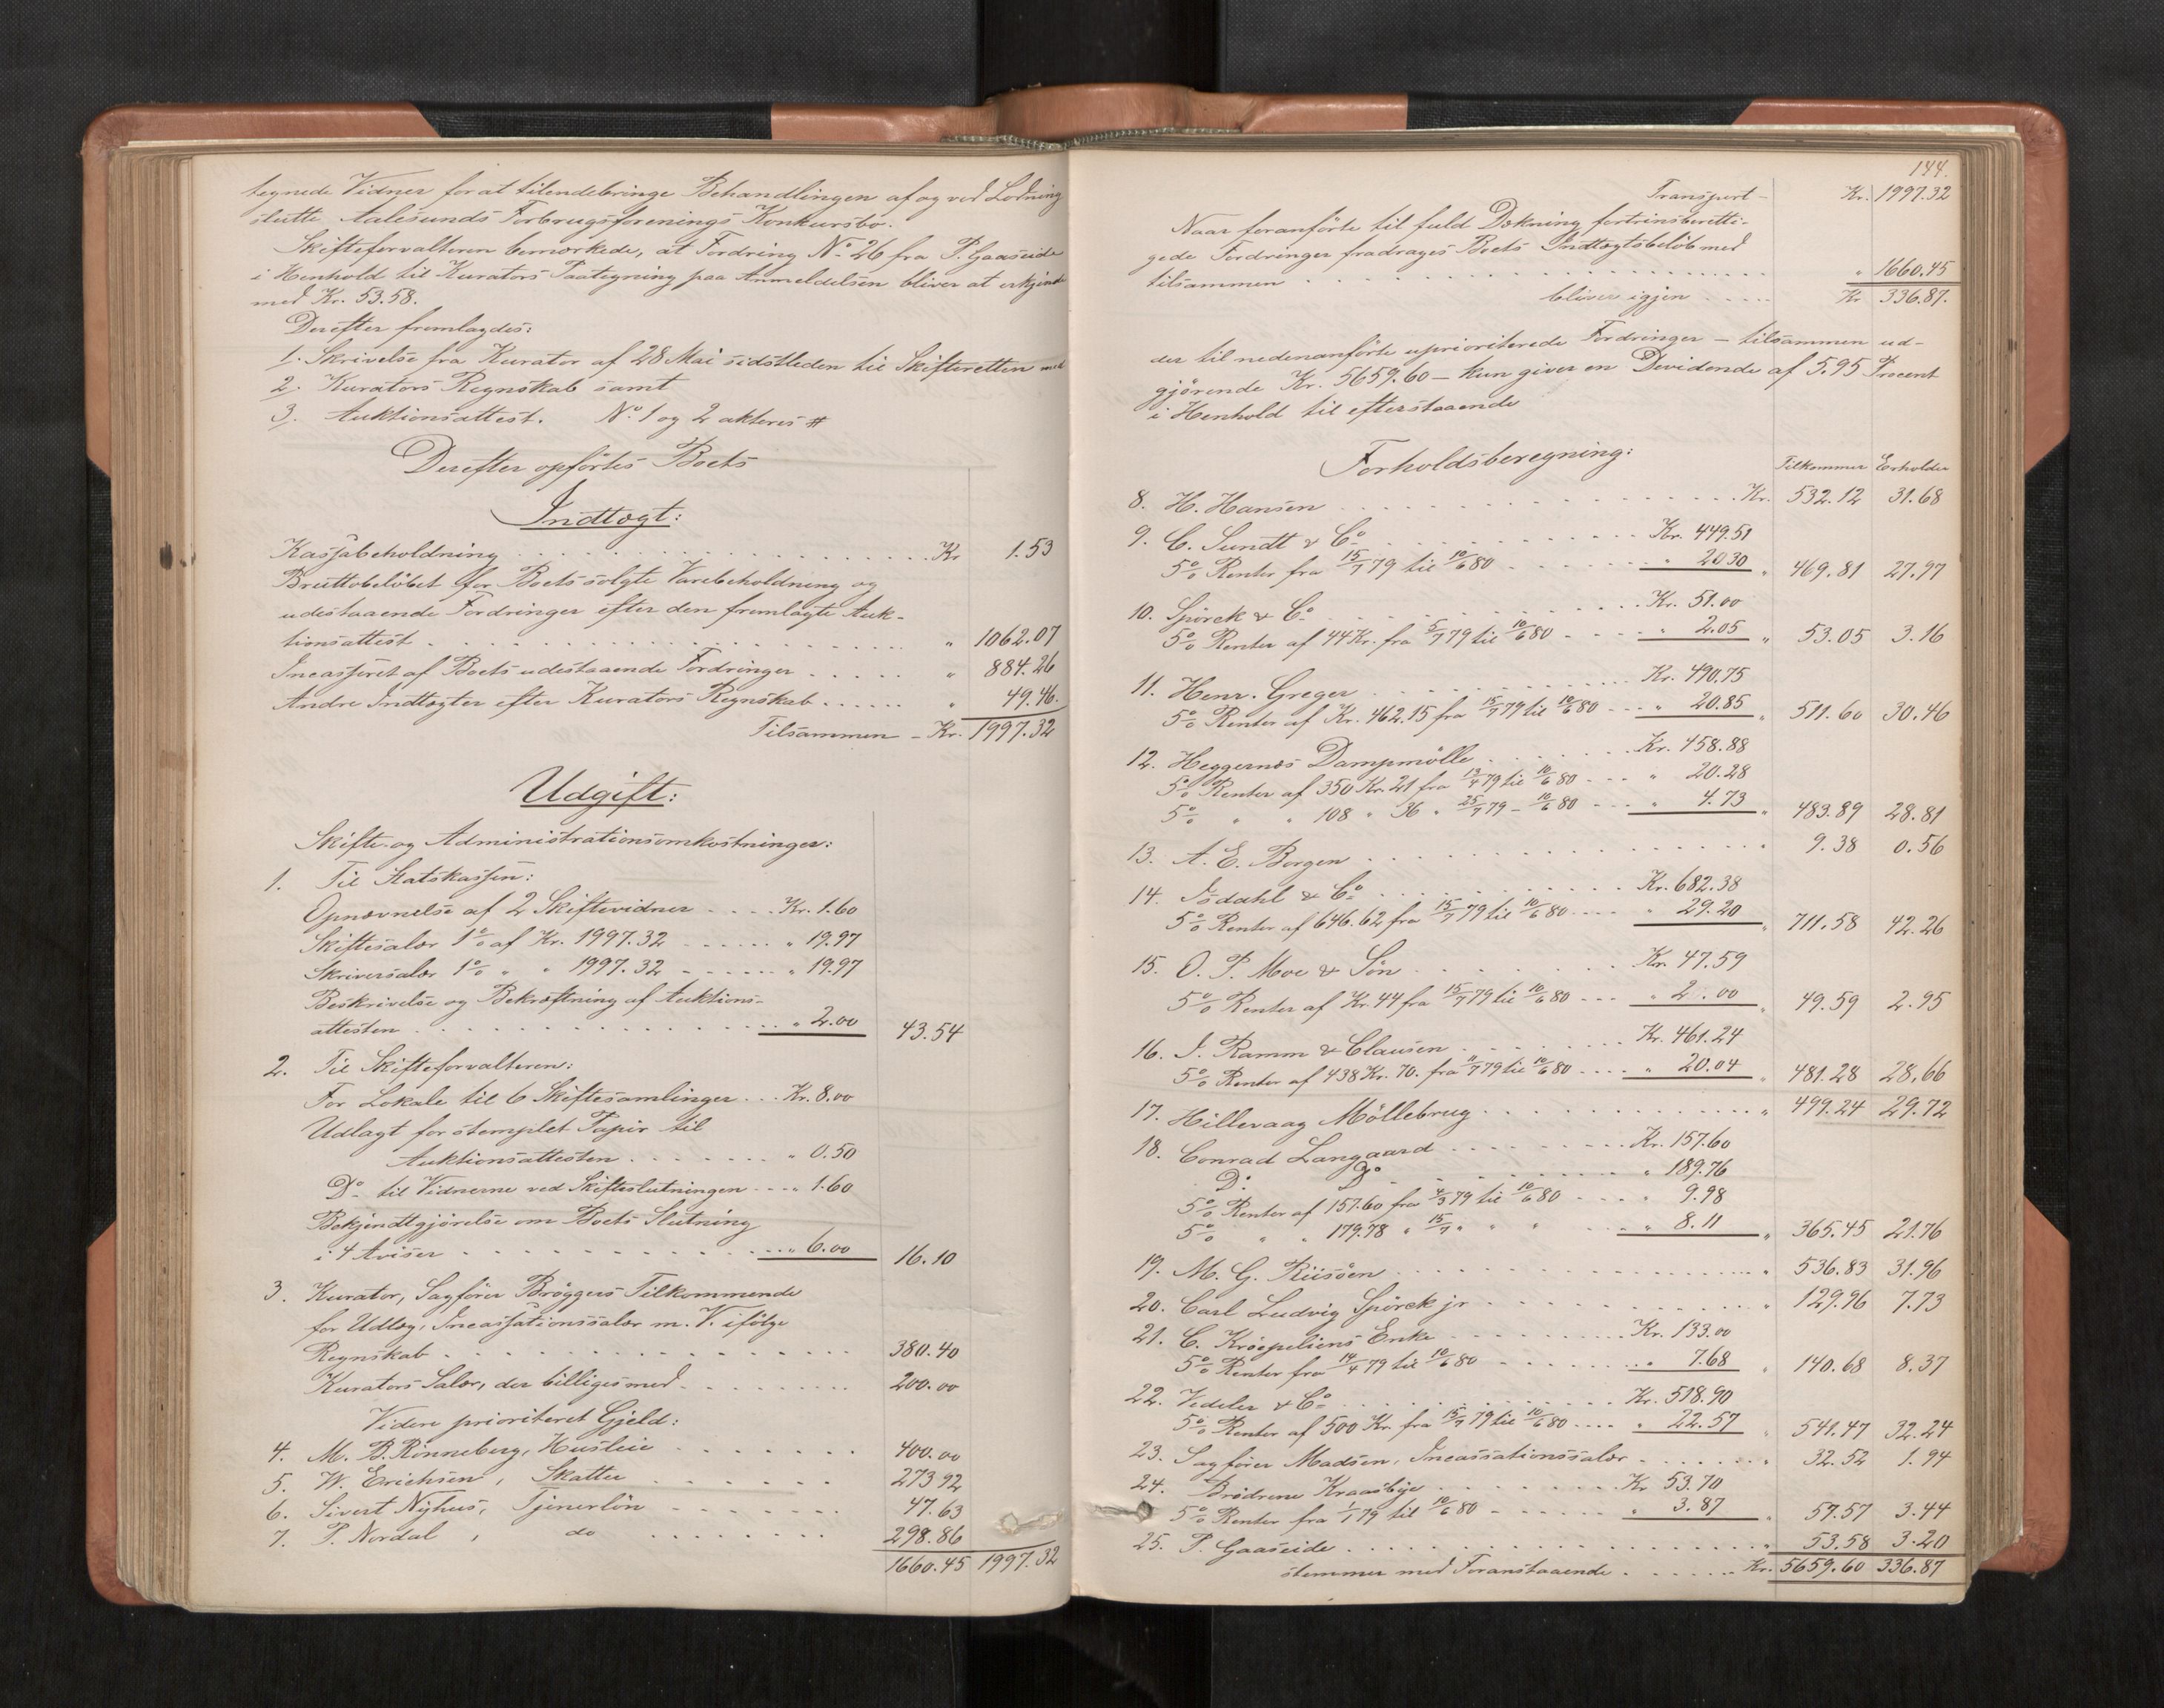 tegnede Vidner for at tilendebringe Behandlingen af og ved Lodning
slutte Aalesunds Forbrugsforenings Konkursbo.
Skifteforvalteren bemærkede, at Fordring No 26 fra P. Gaaseide
i Henhold til Kurators Paategning paa Anmeldelsen bliver at erkjende
med Kr. 53.58.
Derefter fremlagdes:
1. Skrivelse fra Kurator af 28 Mai sidstleden til Skifteretten med
2. Kurators Regnskab samt
3. Auktionsattest. No 1 og 2 akteres #
Derefter opførtes Boets
Indtægt:
Kassabeholdning . . . Kr 1.53
Bruttobeløbet for Boets solgte Varebeholdning og
udestaaende Fordringer efter den fremlagte Auk-
tionsattest . . . " 1062.07
Incasseret af Boets udestaaende Fordringer . . . " 884.26
Andre Indtægter efter Kurators Regnskab . . . " 49.46.
Tilsammen - Kr. 1997.32
Udgift:
Skifte- og Administrationsomkostninger:
1. Til Statskassen:
Opnævnelse af 2 Skiftevidner . . . Kr. 1.60
Skiftesalær 1% af Kr. 1997.32 . . . " 19.97
Skriversalær 1% " " 1997.32 . . . " 19.97
Beskrivelse og Bekræftning af Auktions-
attesten . . . " 2.00 43.54
2. Til Skifteforvalteren:
For Lokale til 6 Skiftesamlinger . . . Kr. 8.00
Udlagt for stemplet Papir til
Auktionsattesten . . . " 0.50
Do til Vidnerne ved Skifteslutningen . . . " 1.60
Bekjendtgjørelse om Boets Slutning
i 4 Aviser . . . " 6.00 16.10
3. Kurator, Sagfører Brøggers Tilkommende
for Udlæg, Incassationssalær m. V. ifølge
Regnskab . . . 380.40
Kurators Salær, der billiges med . . . 200.00
Videre prioriteret Gjeld:
4. M. B. Rønneberg, Husleie . . . 400.00
5. W. Erichsen, Skatter . . . 273 92
6. Sivert Nyhus, Tjenerløn . . . 47.63
7. P. Nordal, do . . . 298.86
1660.45 1997.32
144.
Transport - Kr. 1997.32
Naar foranførte til fuld Dækning fortrinsberetti-
gede Fordringer fradrages Boets Indtægtsbeløb med
tilsammen . . . " 1660.45
bliver igjen . . . Kr 336.87.
der til nedenanførte uprioriterede Fordringer - tilsammen ud-
gjørende Kr. 5659.60 - kun giver en Devidende af 5.95 Procent
i Henhold til efterstaaende
Forholdsberegning: Tilkommer Erholder
8. H. Hansen . . . Kr. 532.12 31.68
9. C. Sundt & Co . . . Kr. 449.51
5% Renter fra 15/7 79 til 10/6 80 . . . " 20 30 " 469.81 27.97
10. Spørck & Co . . . Kr. 51.00
5% Renter af 44 Kr. fra 5/7 79 til 10/6 80 . . . " 2.05 " 53.05 3.16
11. Henr. Greger . . . Kr. 490.75
5% Renter af Kr. 462.15 fra 15/7 79 til 10/6 80 . . . " 20.85 " 511.60 30.46
12. Heggernæs Dampmølle . . . Kr. 458.88
5% Renter af 350 Kr. 21 fra 13/4 79 til 10/6 80 . . . " 20.28
5% " " 108 " 36 " 25/7 79 - 10/6 80 . . . " 4.73 " 483.89 28.81
13. A. E. Borgen . . . " 9.38 0.56
14. Isdahl & Co . . . Kr. 682.38
5% Renter af 646.62 fra 15/7 79 til 10/6 80 . . . " 29.20 " 711.58 42.26
15. O. P. Moe & Søn . . . Kr. 47.59
5% Renter af Kr. 44 fra 15/7 79 til 10/6 80 . . . " 2.00 " 49.59 2.95
16. J. Ramm & Clausen . . . Kr. 461.24
5% Renter af 438 Kr. 70. fra 11/7 79 til 10/6 80 . . . " 20.04 " 481.28 28.66
17. Hillevaag Møllebrug . . . " 499.24 29.72
18. Conrad Langaard . . . Kr. 157.60
Do Do . . . " 189.76
5% Renter af 157.60 fra 4/3 79 til 10/6 80 . . . " 9.98
5% " " 179.78 " 15/7 " " " . . . " 8.11 " 365.45 21.76
19. M. G. Riisøen . . . " 536.83 31.96
20. Carl Ludvig Spörck jr . . . " 129.96 7.73
21. C. Krøepeliens Enke . . . Kr. 133.00
5% Renter fra 14/4 79 til 10/6 80 . . . " 7.68 " 140.68 8.37
22. Vedeler & Co . . . Kr. 518.90
5% Renter af 500 Kr. fra 15/7 79 til 10/6 80 . . . " 22.57 " 541.47 32.24
23. Sagfører Madsen, Incassationssalær . . . " 32.52 1.94
24. Brødrene Kraasbye . . . Kr 53.70
5% Renter fra 1/1 79 til 10/6 80 . . . " 3.87 " 57.57 3.44
25. P. Gaaseide . . . " 53.58 3.20
stemmer med Foranstaaende . . . Kr. 5659.60 336.87